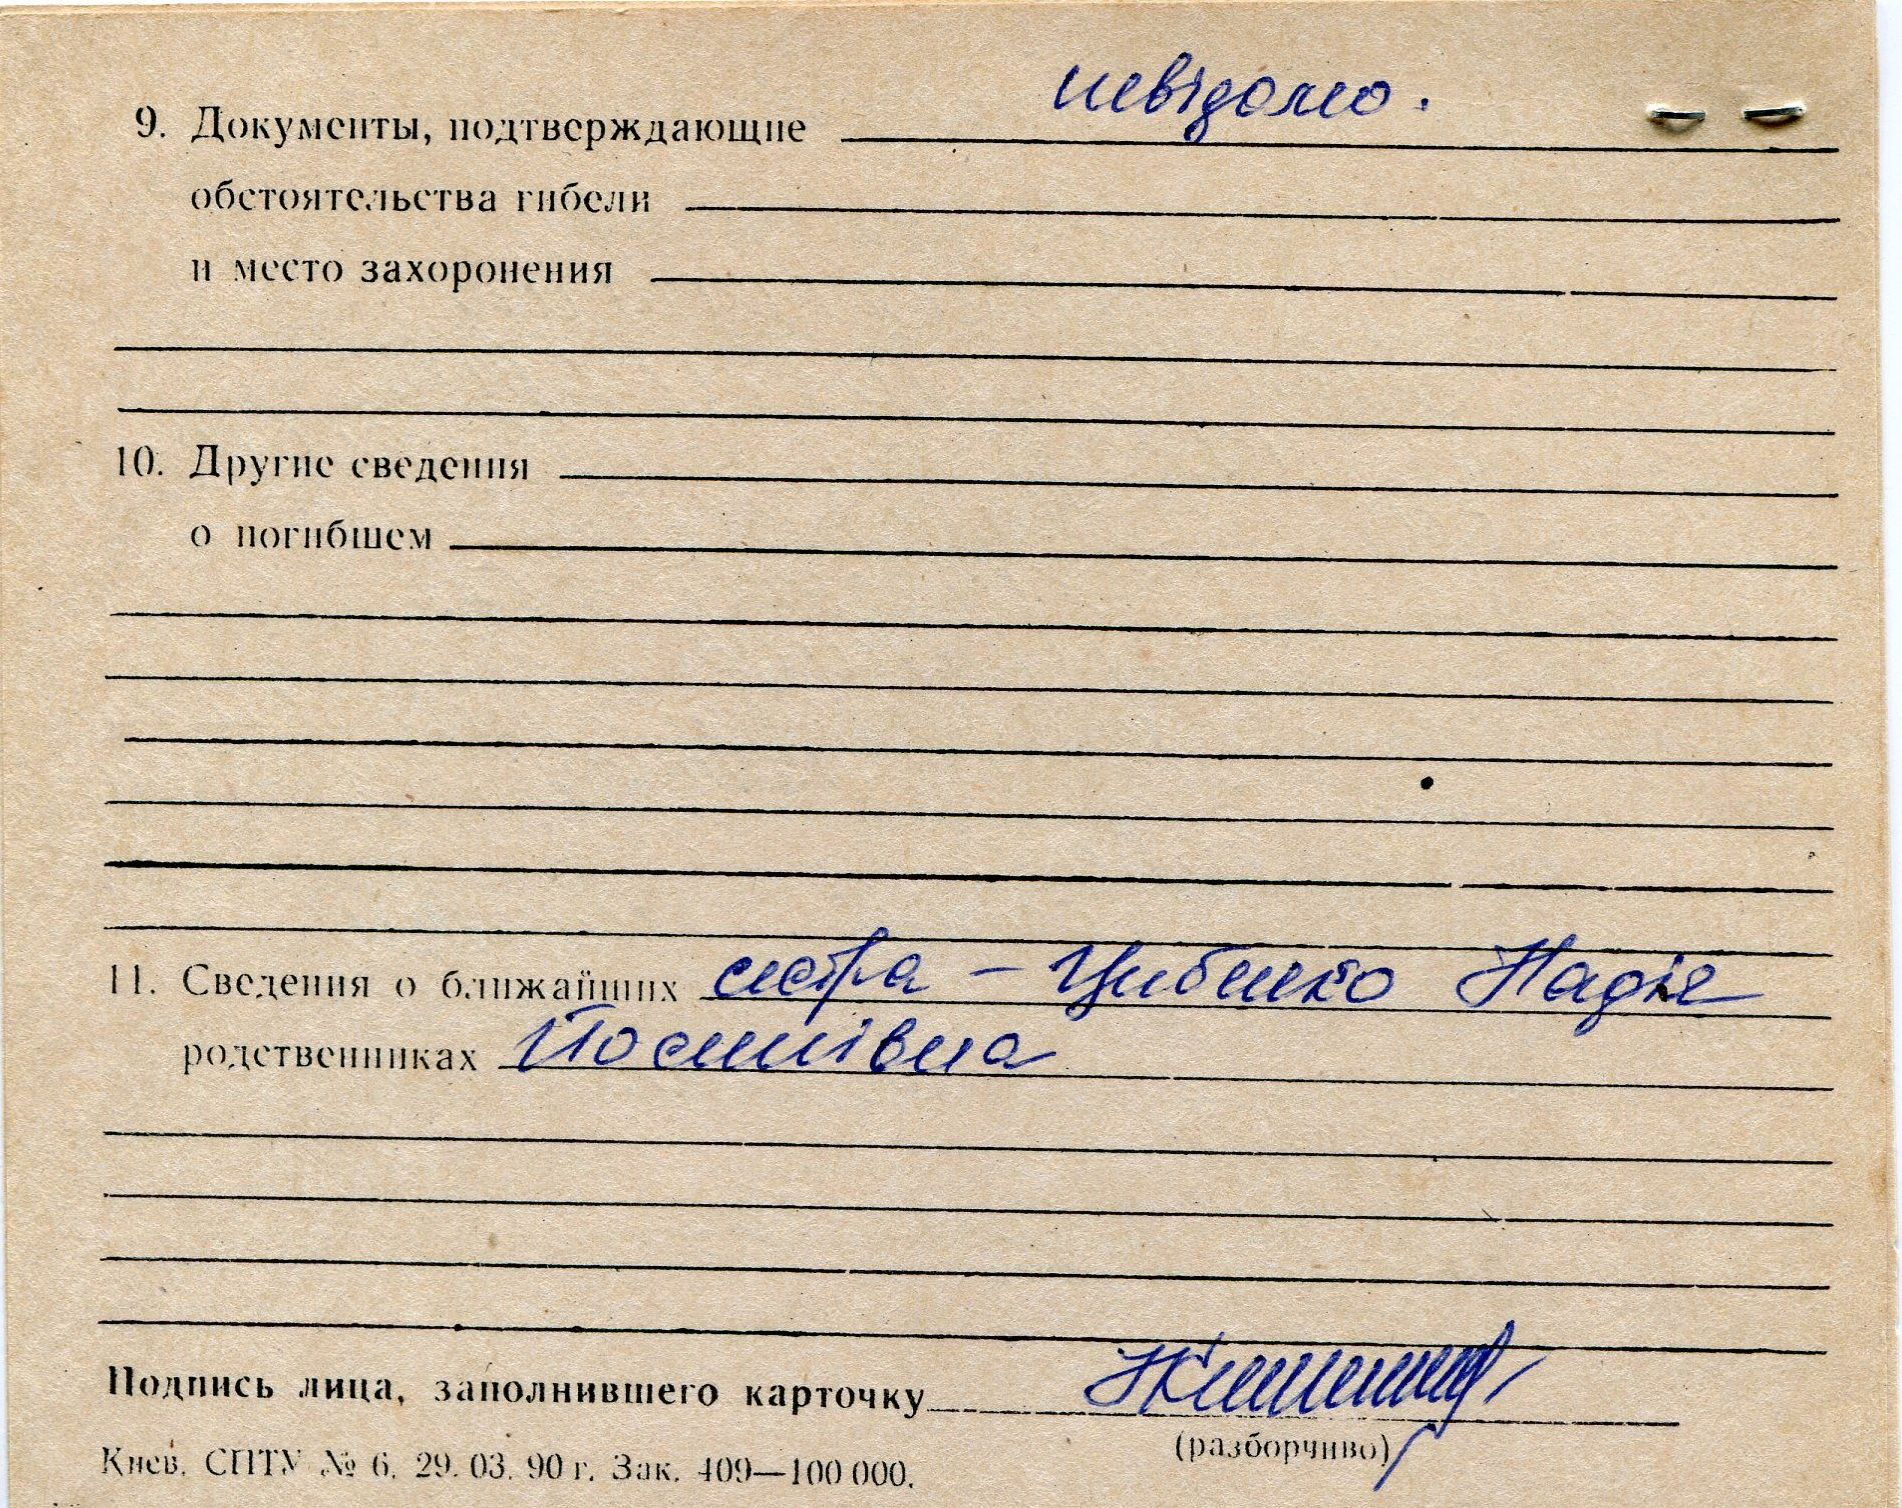 невідомо.
9. Документы, подтверждающие
обстоятельства гибели
и место захоронения
10. Другие сведения
о погибшем
11. Сведения о ближайших сестра – Цибенко Надія
родственниках Йосипівна
Подпись лица, заполнившего карточку
(разборчиво)
Киев. СПТУ № 6. 29. 03. 90 г. Зак. 409—100 000.